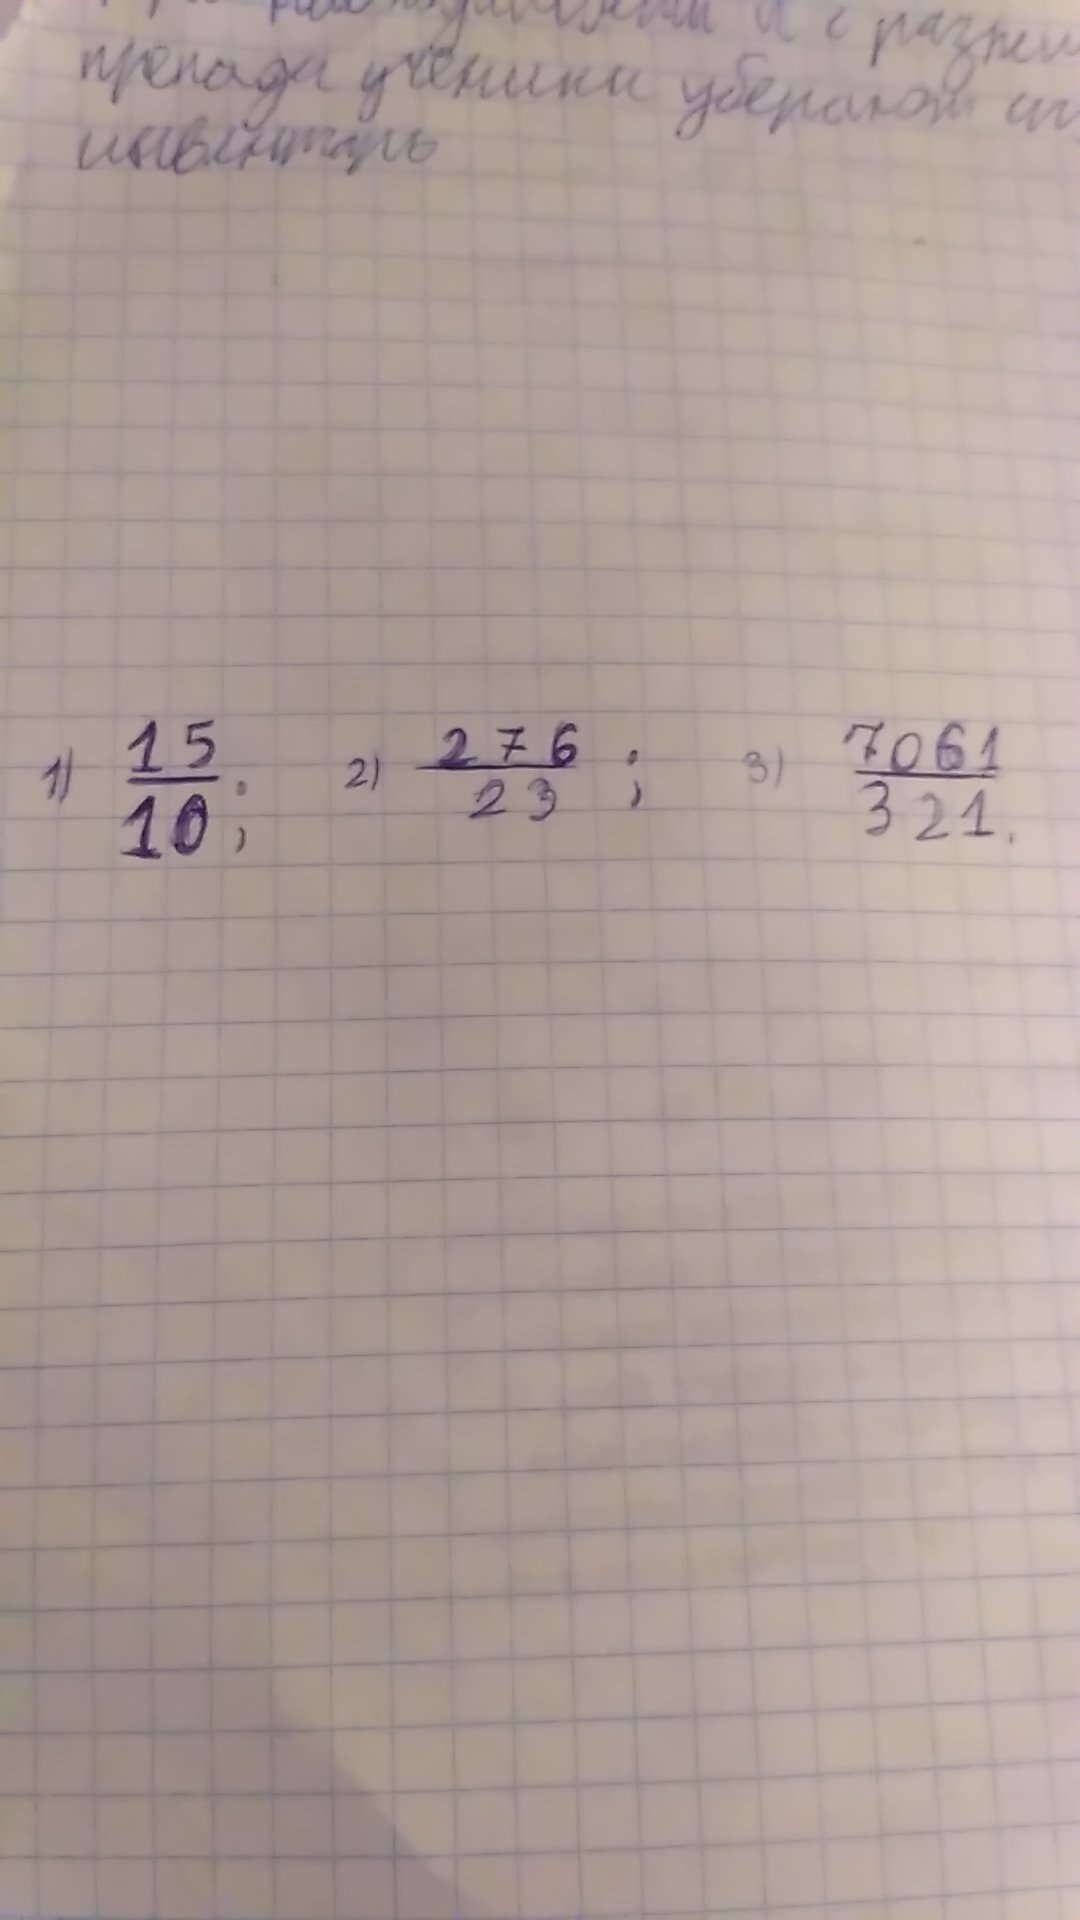 и с
препода ученики уберают
инвентарь
1) 15/10; 2) 276/23; 3) 7061/321.